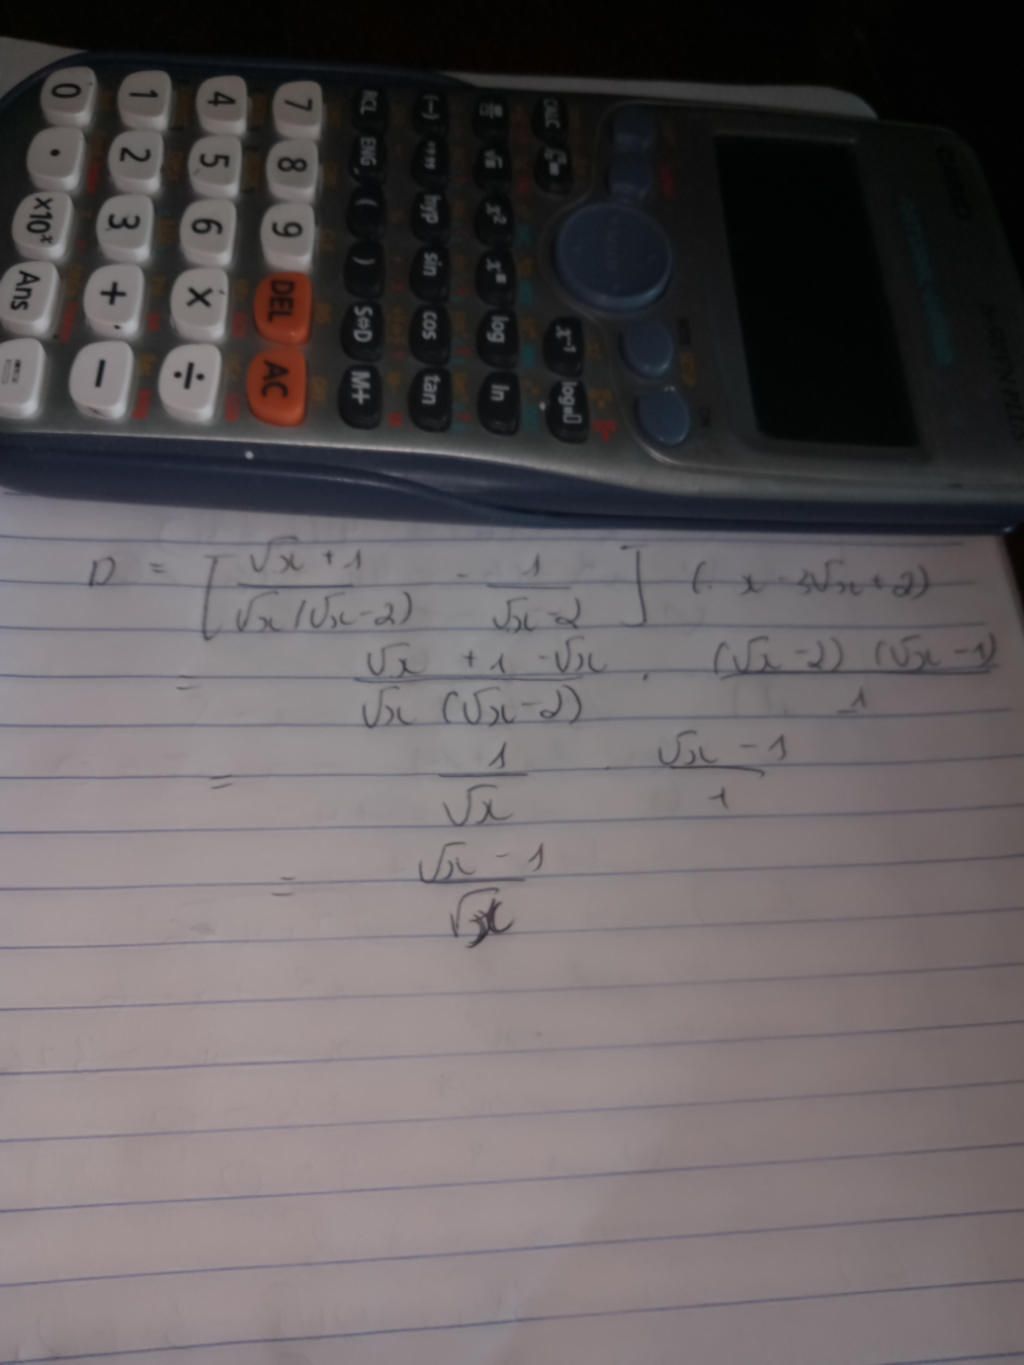 0 1 4 7 RCL (-) CALC
. 2 5 8 ENG °'"
×10ˣ 3 6 9 ( hyp x²
Ans + × DEL ) sin
= − ÷ AC S⇔D cos log x⁻¹
M+ tan ln log
D = [ (√x + 1)/(√x (√x - 2)) - 1/(√x - 2) ] (x - 3√x + 2)
= (√x + 1 - √x)/(√x (√x - 2)) . ((√x - 2) (√x - 1))/1
= 1/√x . (√x - 1)/1
= (√x - 1)/√x